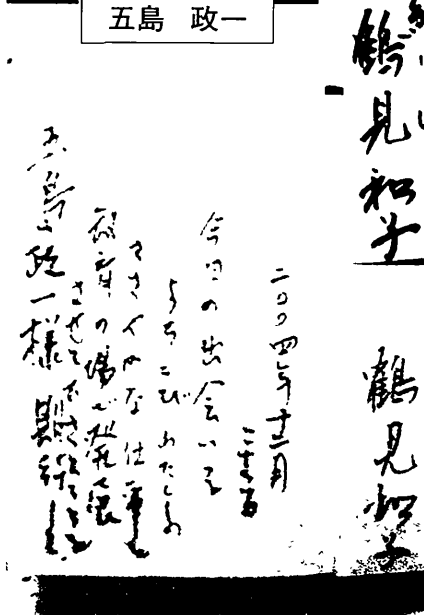 五島 政一
鶴見和子 鶴見和子
二〇〇四年十二月
今日の出会いを
よろこび わたくしの
ささやかな仕事を
教育の場で発展
させて下さることを
五島政一様 期待します